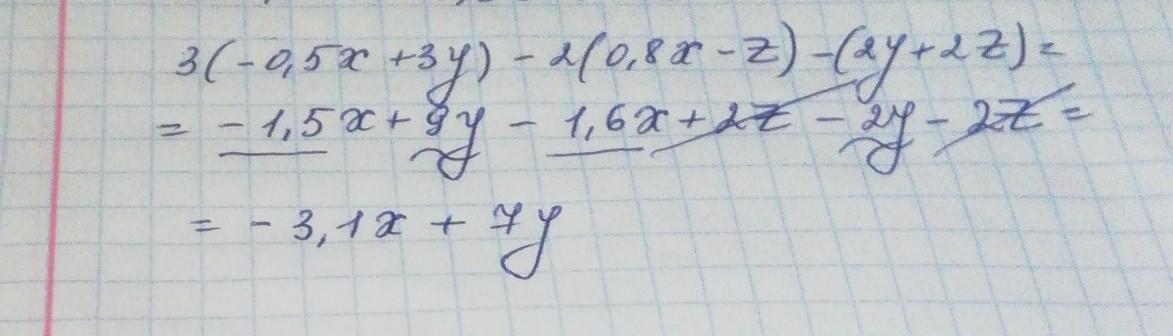 3(-0,5x+3y)-2(0,8x-z)-(2y+2z)=
=-1,5x+9y-1,6x+2z-2y-2z=
=-3,1x+7y